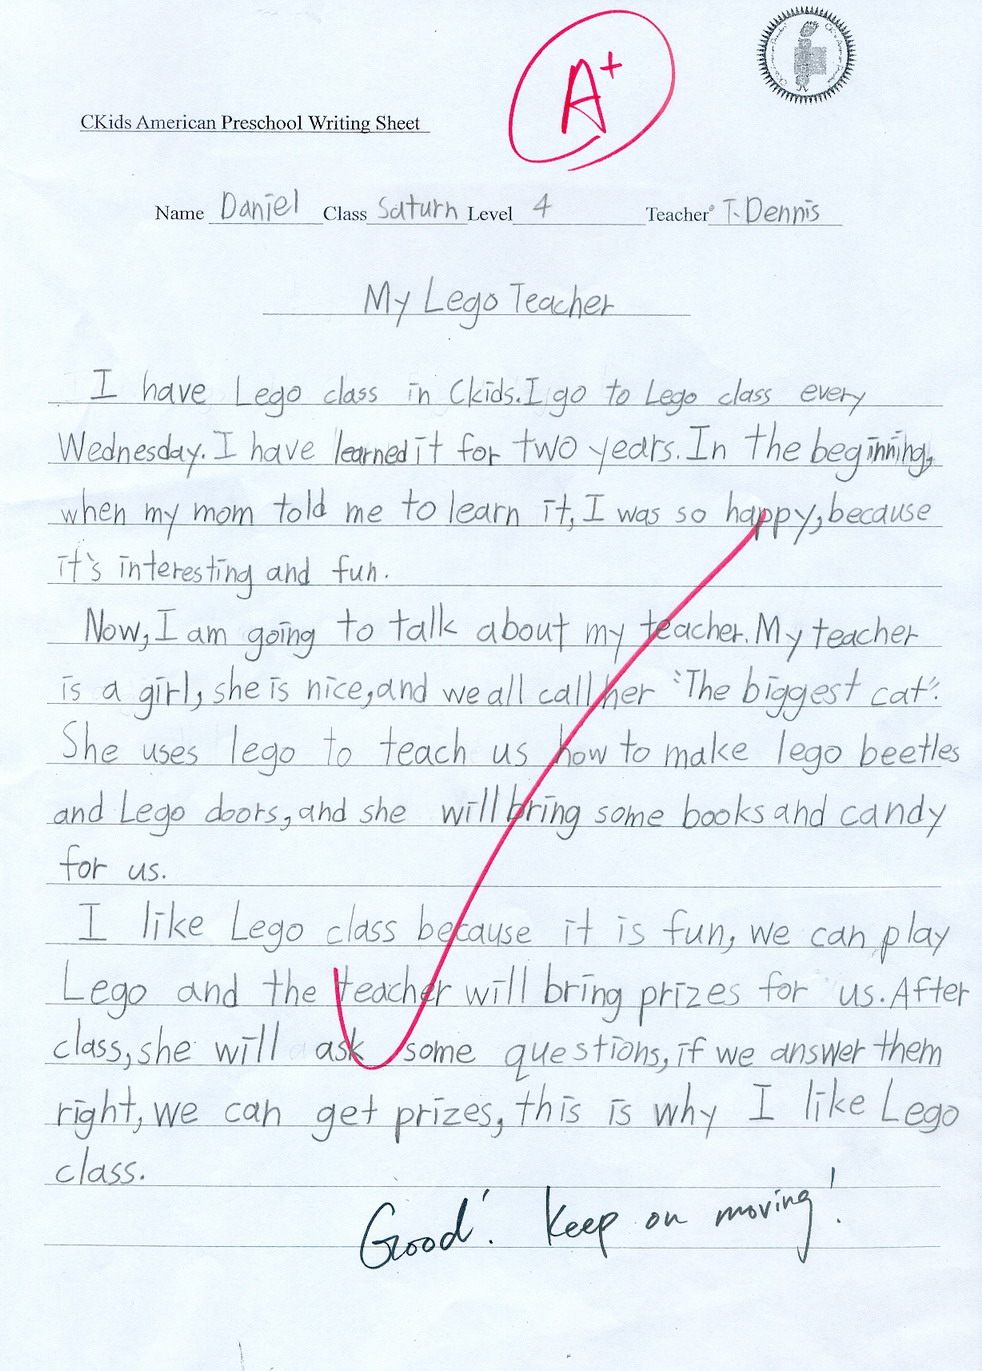 A+
CKids American Preschool Writing Sheet
Name Daniel Class Saturn Level 4 Teacher T. Dennis
My Lego Teacher
I have Lego class in Ckids. I go to Lego class every
Wednesday. I have learned it for two years. In the beginning,
when my mom told me to learn it, I was so happy, because
it's interesting and fun.
Now, I am going to talk about my teacher. My teacher
is a girl, she is nice, and we all call her "The biggest cat".
She uses lego to teach us how to make lego beetles
and Lego doors, and she will bring some books and candy
for us.
I like Lego class because it is fun, we can play
Lego and the teacher will bring prizes for us. After
class, she will ask some questions, if we answer them
right, we can get prizes, this is why I like Lego
class.
Good! Keep on moving!